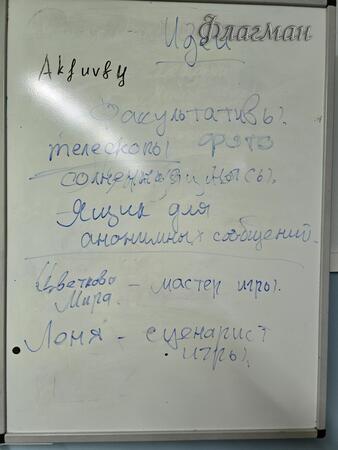 Флагман
Идеи
Факультативы.
телескопы фото
Ящик для
анонимных сообщений.
Цветкова – мастер игры.
Мира.
Лоня – сценарист
игры.